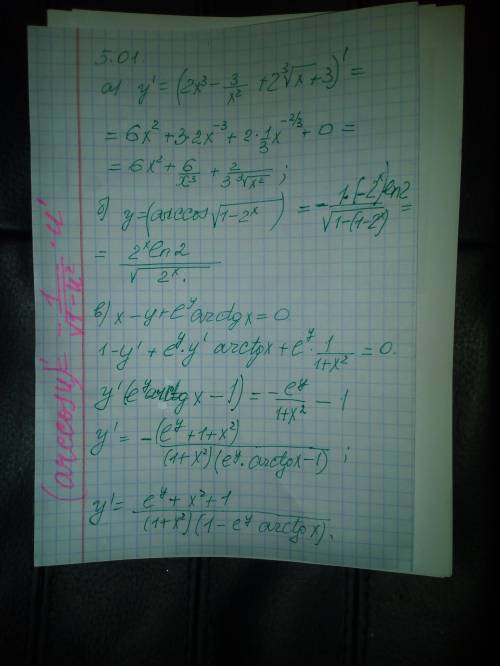 5.01
а) y' = (2x³ - 3/x² + 2∛x + 3)' =
= 6x² + 3·2x⁻³ + 2·1/3 x^(-2/3) + 0 =
= 6x² + 6/x³ + 2/(3∛x²) ;
б) y = (arccos √(1-2ˣ) ) = - 1·(-2ˣ)ln2 / √(1-(1-2ˣ)) =
= 2ˣ ln2 / √(2ˣ) .
в) x - y + e^y arctg x = 0
1 - y' + e^y · y' arctg x + e^y · 1/(1+x²) = 0.
y'(e^y arctg x - 1) = -e^y/(1+x²) - 1
y' = -(e^y + 1 + x²) / ((1+x²)(e^y · arctg x - 1)) ;
y' = (e^y + x² + 1) / ((1+x²)(1 - e^y arctg x)).
(arccos u)' = - 1/√(1-u²) · u'